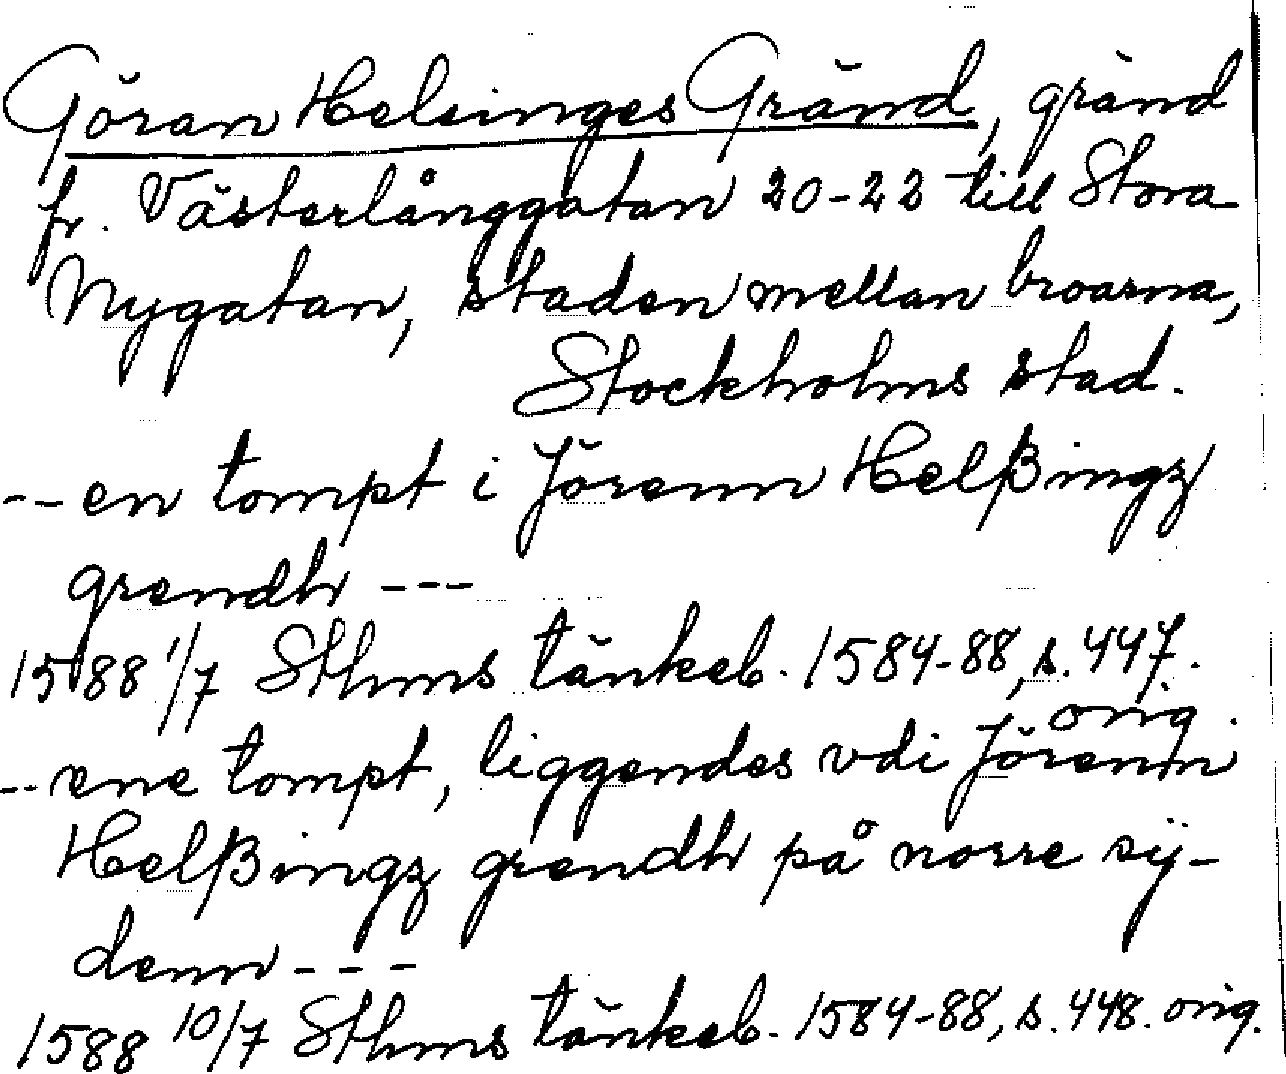 Göran Helsinges Gränd, gränd
fr. Västerlånggatan 20-22 till Stora
Nygatan, staden mellan broarna,
Stockholms stad.
--en tompt i Jörenn Helßingz
grendh ---
1588 1/7 Sthms tänkeb. 1584-88, s. 447.
orig.
--ene tompt, liggendes vdi Jörenn
Helßingz grendh på norre sÿ-
denn ---
1588 10/7 Sthms tänkeb. 1584-88, s. 448. orig.